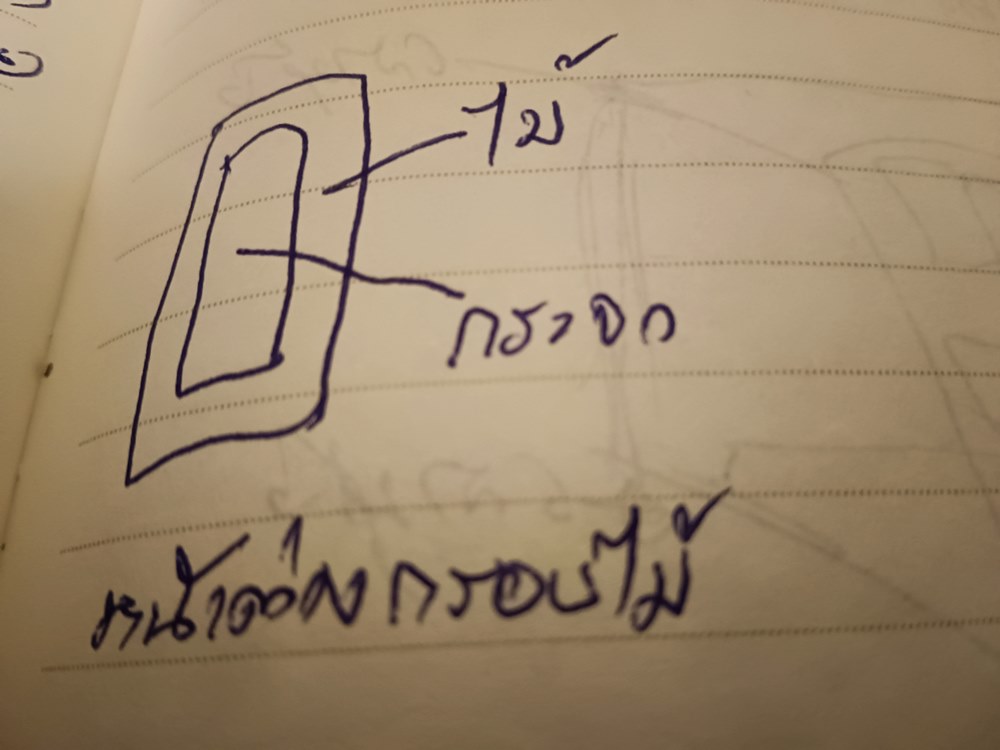 ไม้
กระจก
หน้าต่างกรอบไม้